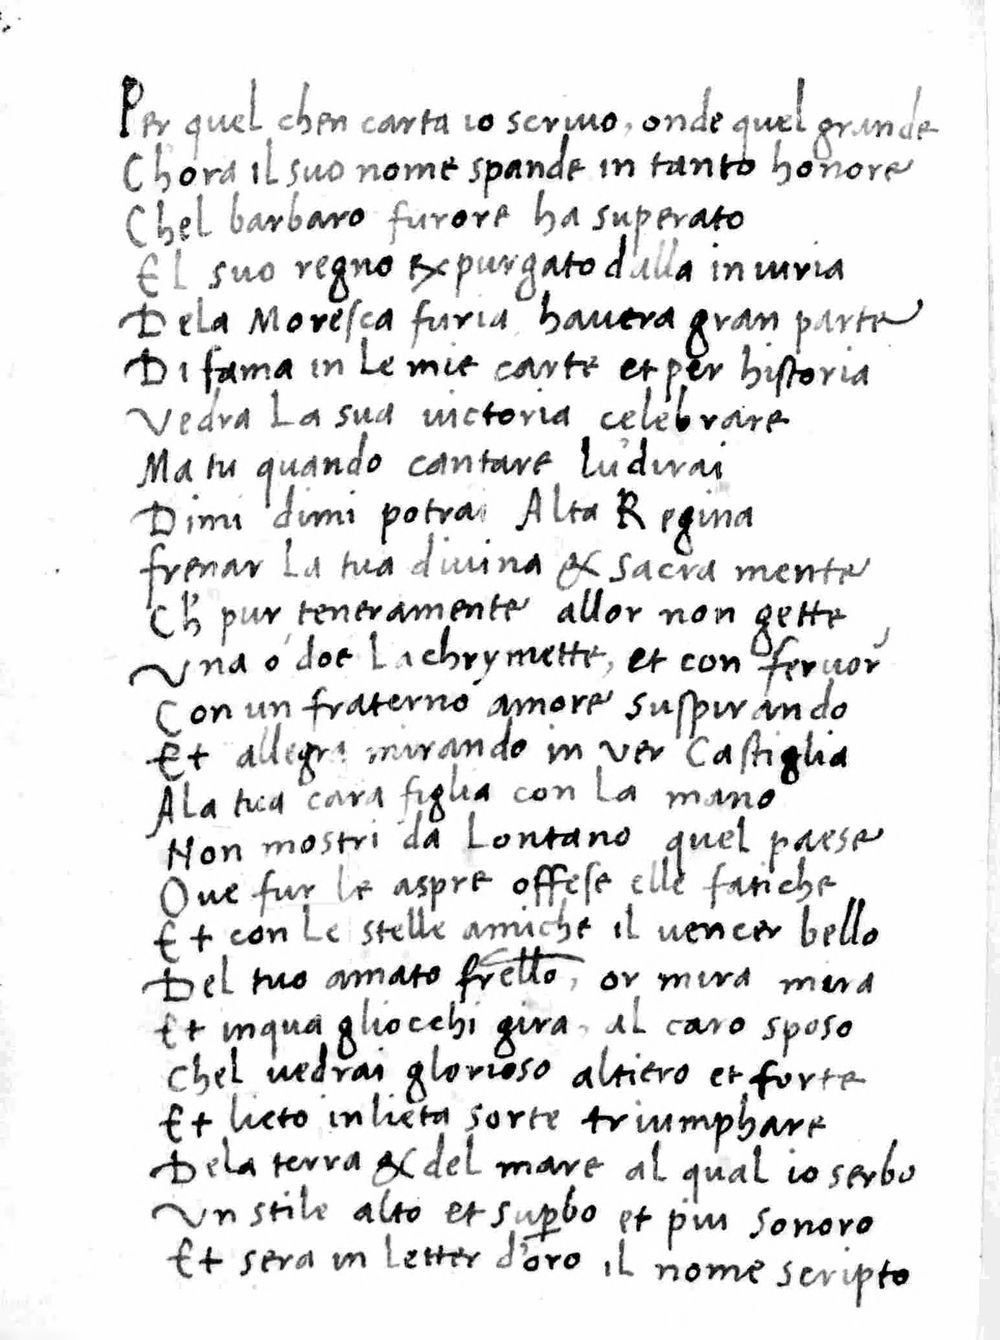 Per quel chen carta io scriuo, onde quel grande
Chora il suo nome spande in tanto honore
Chel barbaro furore ha superato
El suo regno expurgato dalla iniuria
Dela Moresca furia hauera gran parte
Di fama in le mie carte et per historia
Vedra la sua uictoria celebrare
Ma tu quando cantare lu'dirai
Dimi dimi potrai Alta Regina
frenar la tua diuina & sacra mente
Ch' pur teneramente allor non gette
Vna o doe lachrymette, et con feruor'
Con un fraterno amore suspirando
Et allegra mirando in ver Castiglia
Ala tua cara figlia con la mano
Non mostri da lontano quel paese
Oue fur le aspre offese elle fatiche
Et con le stelle amiche il uencer bello
Del tuo amato frello, or mira mira
Et inqua gliocchi gira, al caro sposo
Chel uedrai glorioso altiero et forte
Et lieto in lieta sorte triumphare
Dela terra & del mare al qual io serbo
Vn stile alto et supbo et piu sonoro
Et sera in letter d'oro il nome scripto